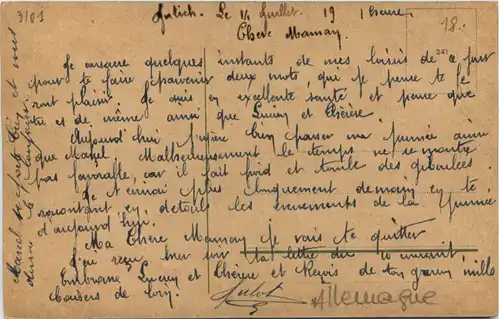 3/01
Julich. Le 1/ Juillet. 19 1 heure.
Chère Maman.
241
18.
Je consacre quelques instants de mes loisirs de ce jour
pour te faire parvenir deux mots, qui je pense te le
ront plaisir Je suis en excellente santé et pense que
être es de même ainsi que Lucien et Thérèse
Aujourd'hui j'espère bien passer ma journée ainsi
que Marcel Malheureusement le temps ne se montre
pas favorable, car il fait froid et tombe des giboulées
Je t'écrirai plus longuement demain en te
racontant en détails les évènements de la journée
d'aujourd'hui.
Ma Chère Maman je vais te quitter
J'ai reçu hier soir ta lettre du 10 courant
Embrasse Lucien et Thérèse et Reçois de ton grand mille
baisers de loin.
Allemagne
Marcel se porte bien et vous